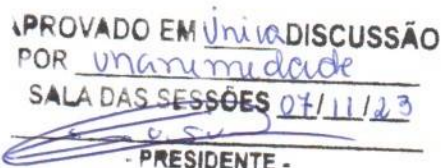 APROVADO EM única DISCUSSÃO
POR unanimidade
SALA DAS SESSÕES 07/11/23
- PRESIDENTE -